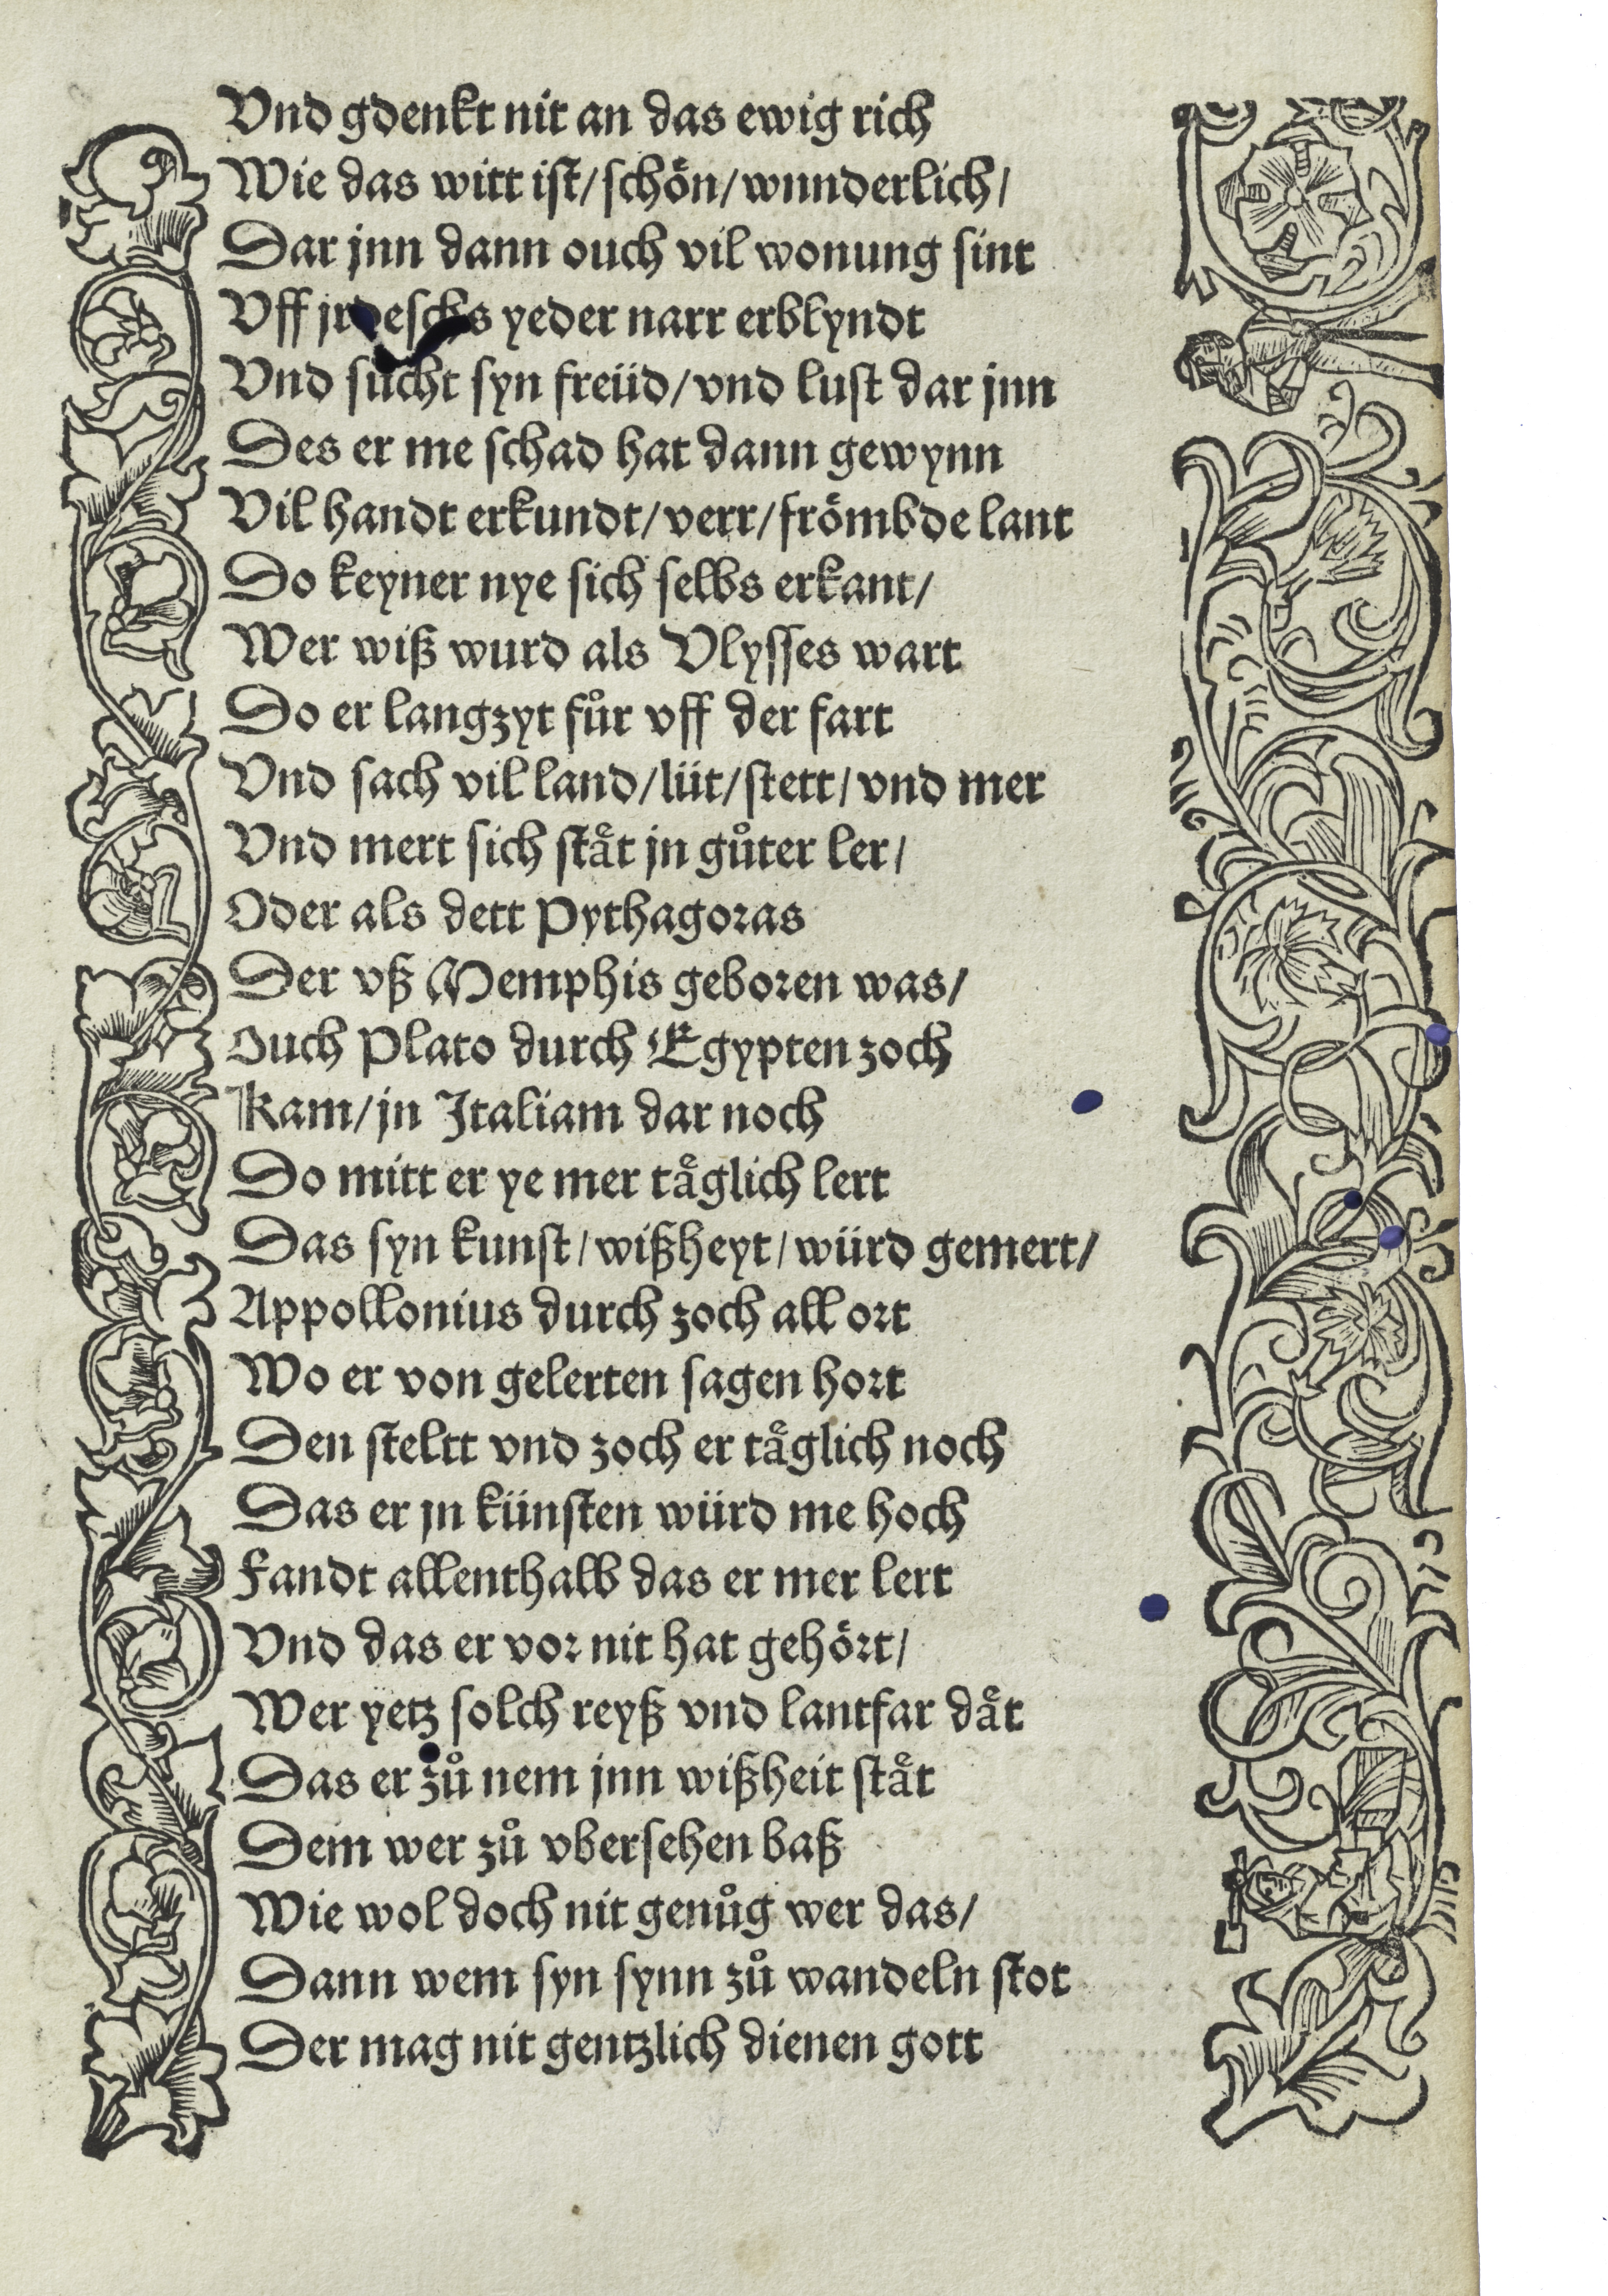 Vnd gdenkt nit an das ewig rich
Wie das witt ist/ schoͤn/ wunderlich/
Dar jnn dann ouch vil wonung sint
Vff jrdeschs yeder narr erblyndt
Vnd sücht syn freüd/ vnd lust dar jnn
Des er me schad hat dann gewynn
Vil handt erkundt/ verr/ froͤmbde lant
Do keyner nye sich selbs erkant/
Wer wiß wurd als Vlysses wart
Do er langzyt fuͦr vff der fart
Vnd sach vil land/ lüt/ stett/ vnd mer
Vnd mert sich staͤt jn guͦter ler/
Oder als dett Pythagoras
Der vß Memphis geboren was/
Ouch Plato durch Egypten zoch
Kam/ jn Italiam dar noch
Do mitt er ye mer taͤglich lert
Das syn kunst/ wißheyt/ würd gemert/
Appollonius durch zoch all ort
Wo er von gelerten sagen hort
Den steltt vnd zoch er taͤglich noch
Das er jn künsten würd me hoch
Fandt allenthalb das er mer lert
Vnd das er vor nit hat gehoͤrt/
Wer yetz solch reyß vnd lantfar daͤt
Das er zuͦ nem jnn wißheit staͤt
Dem wer zuͦ vbersehen baß
Wie wol doch nit genuͦg wer das/
Dann wem syn synn zuͦ wandeln stot
Der mag nit gentzlich dienen gott